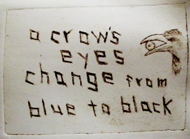 a crow's
eyes
change from
blue to black